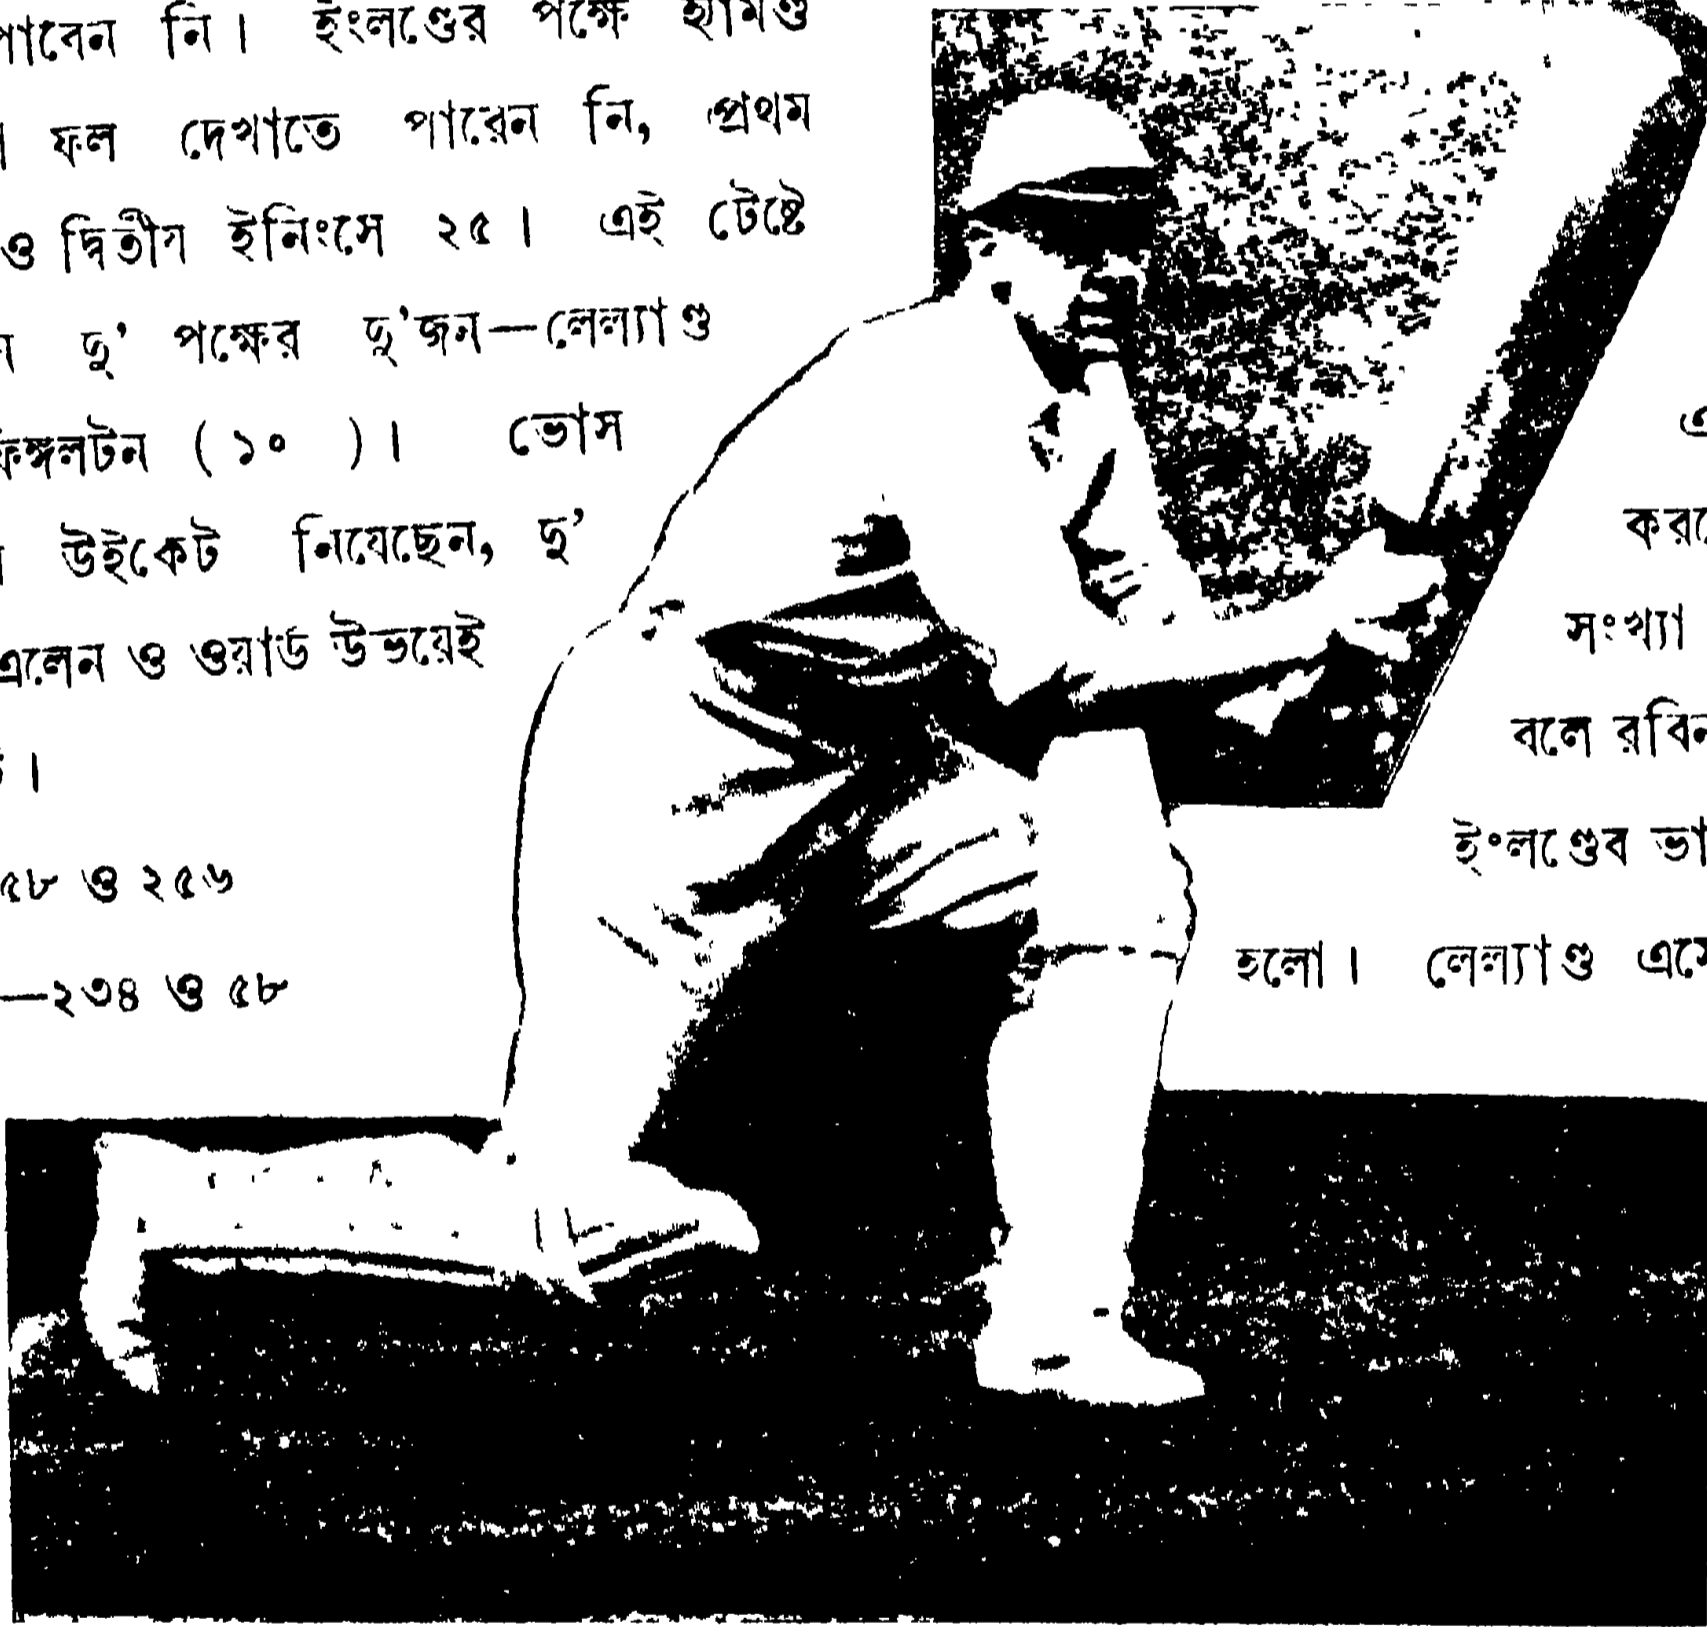 পাবেন নি। ইংলণ্ডের পক্ষে হ্যামণ্ড
ফল দেখাতে পারেন নি, প্রথম
ও দ্বিতীয় ইনিংসে ২৫। এই টেষ্টে
দু' পক্ষের দু'জন—লেল্যাণ্ড
ফিঙ্গলটন (১০ )। ভোস
উইকেট নিযেছেন, দু'
এলেন ও ওয়ার্ড উভয়েই
।
৫৮ ও ২৫৬
—২৩৪ ও ৫৮
এ
সংখ্যা
বলে রবিন
ইংলণ্ডেব ভা
হলো। লেল্যাণ্ড এসে